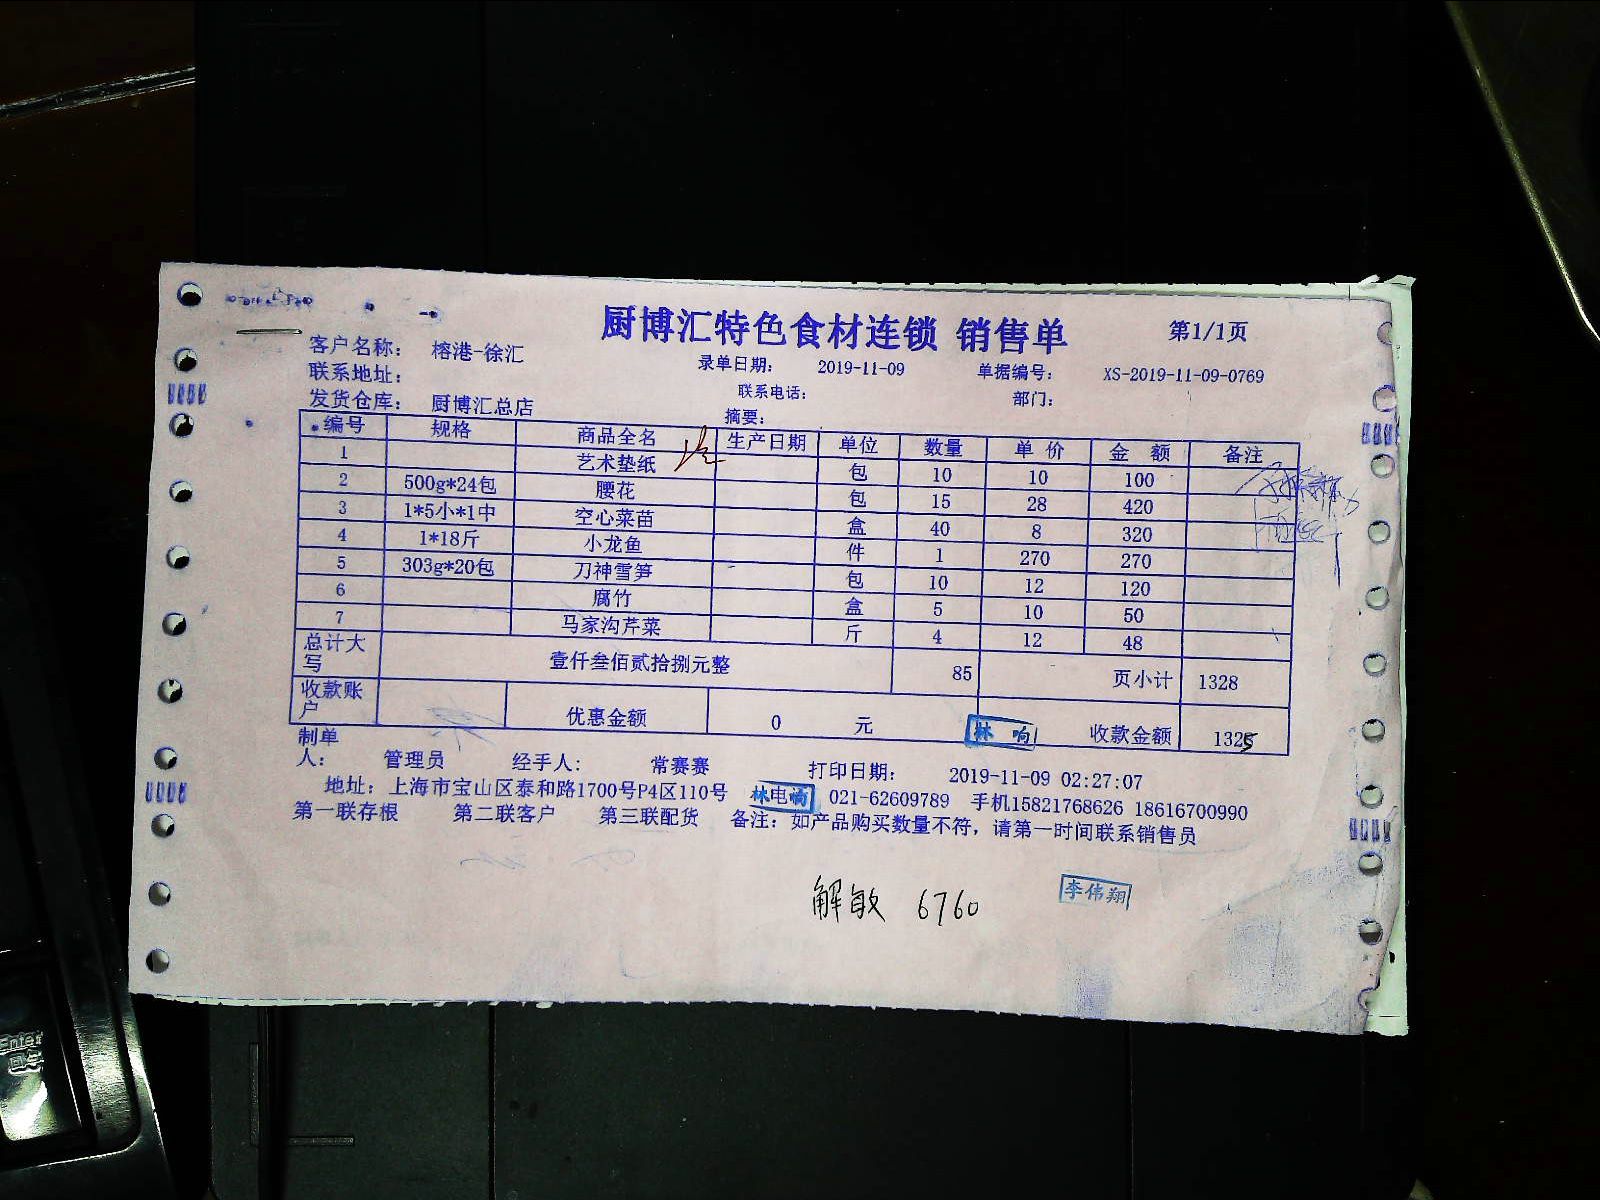 厨博汇特色食材连锁 销售单 第1/1页
客户名称: 榕港-徐汇 录单日期: 2019-11-09 单据编号: XS-2019-11-09-0769
联系地址: 联系电话: 部门:
发货仓库: 厨博汇总店 摘要:
编号 规格 商品全名 生产日期 单位 数量 单价 金额 备注
1 艺术垫纸 包 10 10 100
2 500g*24包 腰花 包 15 28 420
3 1*5小*1中 空心菜苗 盒 40 8 320
4 1*18斤 小龙鱼 件 1 270 270
5 303g*20包 刀神雪笋 包 10 12 120
6 腐竹 盒 5 10 50
7 马家沟芹菜 斤 4 12 48
总计大写 壹仟叁佰贰拾捌元整 85 页小计 1328
收款账户 优惠金额 0 元 林响 收款金额 1325
制单人: 管理员 经手人: 常赛赛 打印日期: 2019-11-09 02:27:07
地址: 上海市宝山区泰和路1700号P4区110号 021-62609789 手机15821768626 18616700990
第一联存根 第二联客户 第三联配货 备注: 如产品购买数量不符, 请第一时间联系销售员
解敏 6760 李伟翔
Enter